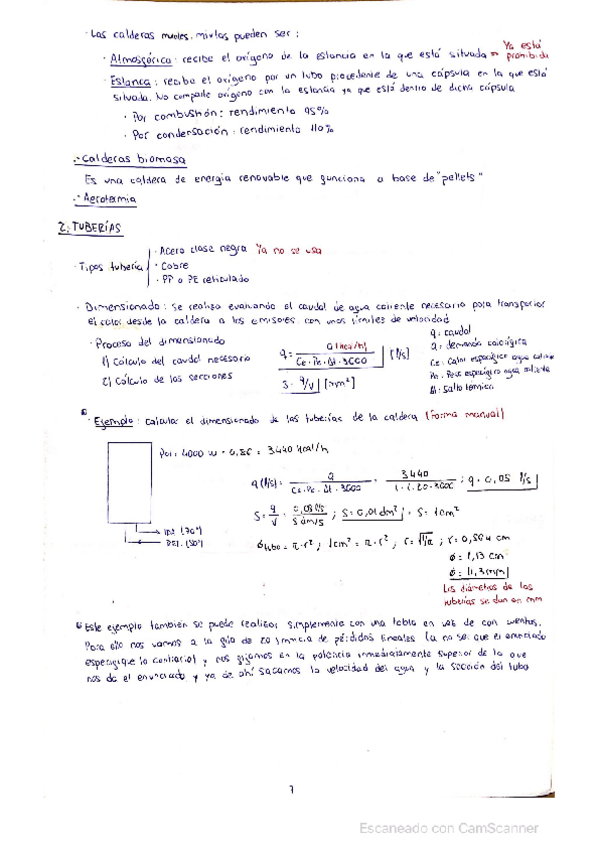 · Las calderas murales mixtas pueden ser:
· Atmosférica: recibe el oxígeno de la estancia en la que está situada ⇒ Ya está prohibida
· Estanca: recibe el oxígeno por un tubo procedente de una cápsula en la que está
situada. No comparte oxígeno con la estancia ya que está dentro de dicha cápsula
· Por combustión: rendimiento 95%
· Por condensación: rendimiento 110%
·Calderas biomasa
Es una caldera de energía renovable que funciona a base de "pellets"
·Aerotermia
2. TUBERÍAS
· Tipos tubería
· Acero clase negra Ya no se usa
· Cobre
· PP o PE reticulado
· Dimensionado: Se realiza evaluando el caudal de agua caliente necesario para transportar
el calor desde la caldera a los emisores con unos límites de velocidad
· Proceso del dimensionado
1) Cálculo del caudal necesario
2) Cálculo de las secciones
q = Q (kcal/h) / Ce·Pe·Δt·3600 [l/s]
S = q/v [mm²]
q = caudal
Q = demanda calorífica
Ce = Calor específico agua caliente
Pe = Peso específico agua caliente
Δt = Salto térmico
· Ejemplo: calcular el dimensionado de las tuberías de la caldera (Forma manual)
Pot: 4000 W · 0,86 = 3.440 kcal/h
q (l/s) = Q / Ce·Pe·Δt·3600 = 3.440 / 1·1·20·3600 ; q = 0,05 l/s
S = q/v = 0,05 l/s / 5 dm/s ; S = 0,01 dm² ; S = 1 cm²
IDA (70°)
RET. (50°)
Φtubo = π·r² ; 1cm² = π·r² ; r = √1/π ; r = 0,564 cm
Φ = 1,13 cm
Φ = 11,3 mm
Los diámetros de las
tuberías se dan en mm
Este ejemplo también se puede realizar simplemente con una tabla en vez de con cuentas.
Para ello nos vamos a la guía de 20 mmca de pérdidas lineales (a no ser que el enunciado
especifique lo contrario) y nos fijamos en la potencia inmediatamente superior de la que
nos da el enunciado y ya de ahí sacamos la velocidad del agua y la sección del tubo
7
Escaneado con CamScanner